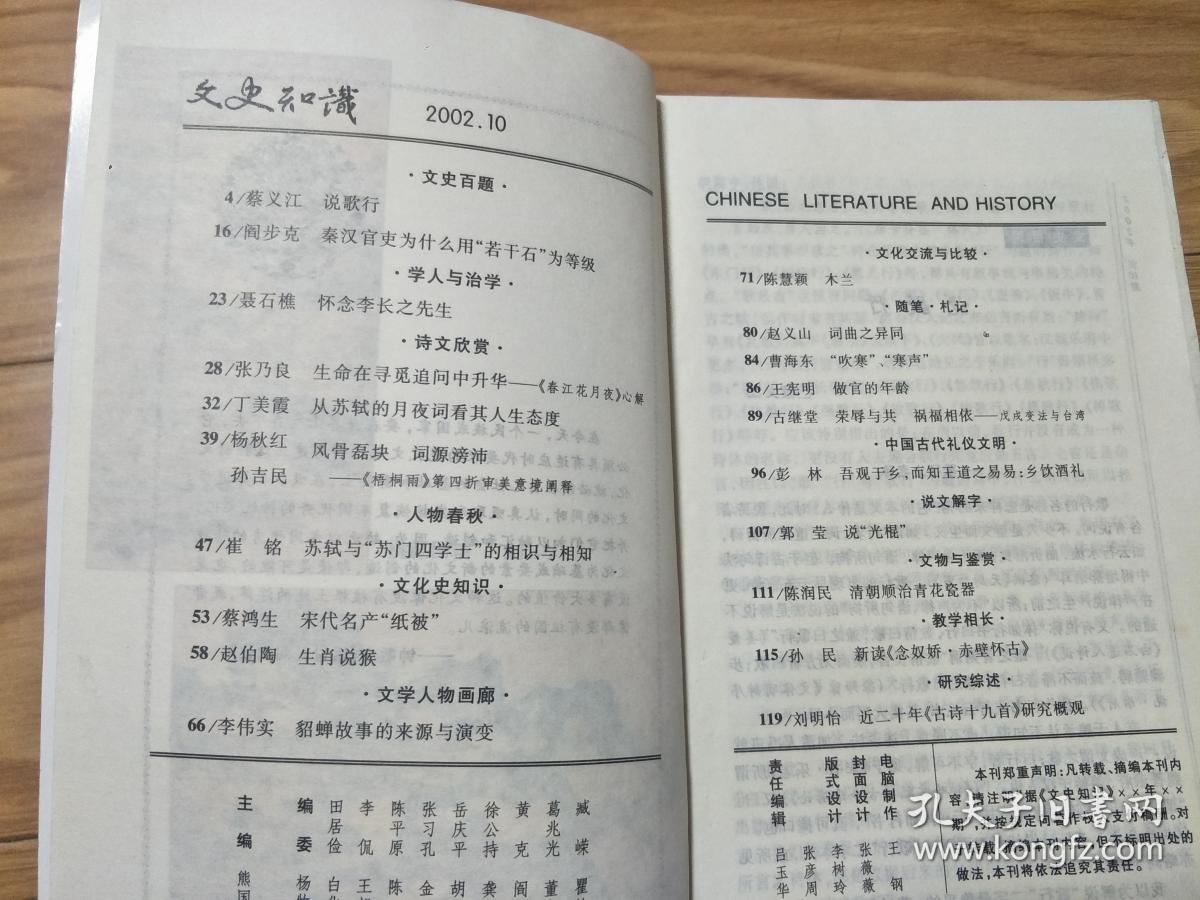 文史知識
2002.10
·文史百题·
4/蔡义江 说歌行
16/阎步克 秦汉官吏为什么用“若干石”为等级
·学人与治学·
23/聂石樵 怀念李长之先生
·诗文欣赏·
28/张乃良 生命在寻觅追问中升华——《春江花月夜》心解
32/丁美霞 从苏轼的月夜词看其人生态度
39/杨秋红 风骨磊块 词源滂沛
孙吉民 ——《梧桐雨》第四折审美意境阐释
·人物春秋·
47/崔 铭 苏轼与“苏门四学士”的相识与相知
·文化史知识·
53/蔡鸿生 宋代名产“纸被”
58/赵伯陶 生肖说猴
·文学人物画廊·
66/李伟实 貂蝉故事的来源与演变
主编
编委
田居俭
李侃
陈平原
张习孔
岳庆平
徐公持
黄克
葛兆光
臧嵘
熊国
杨
白化
王
陈
金
胡
龚
阎
董
瞿
CHINESE LITERATURE AND HISTORY
·文化交流与比较·
71/陈慧颖 木兰
·随笔·札记·
80/赵义山 词曲之异同
84/曹海东 “吹寒”、“寒声”
86/王宪明 做官的年龄
89/古继堂 荣辱与共 祸福相依——戊戌变法与台湾
·中国古代礼仪文明·
96/彭 林 吾观于乡,而知王道之易易:乡饮酒礼
·说文解字·
107/郭 莹 说“光棍”
·文物与鉴赏·
111/陈润民 清朝顺治青花瓷器
·教学相长·
115/孙 民 新读《念奴娇·赤壁怀古》
·研究综述·
119/刘明怡 近二十年《古诗十九首》研究概观
责任编辑
版式设计
封面设计
电脑制作
吕玉华
张彦周
李树玲
张薇薇
王钢
本刊郑重声明:凡转载、摘编本刊内
容,请注明“据《文史知识》××年××
期”,并按规定向著作权人支付稿酬。对
于转载、摘编本刊内容,但不标明出处的
做法,本刊将依法追究其责任。
孔夫子旧书网
www.kongfz.com